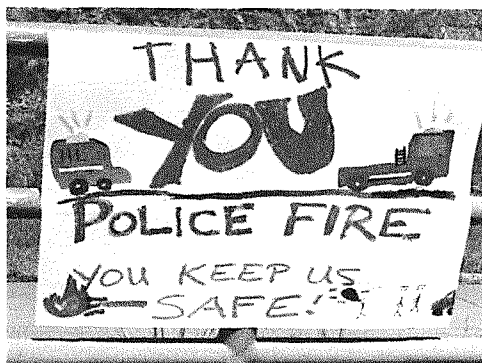 THANK
YOU
POLICE FIRE
YOU KEEP US
SAFE!